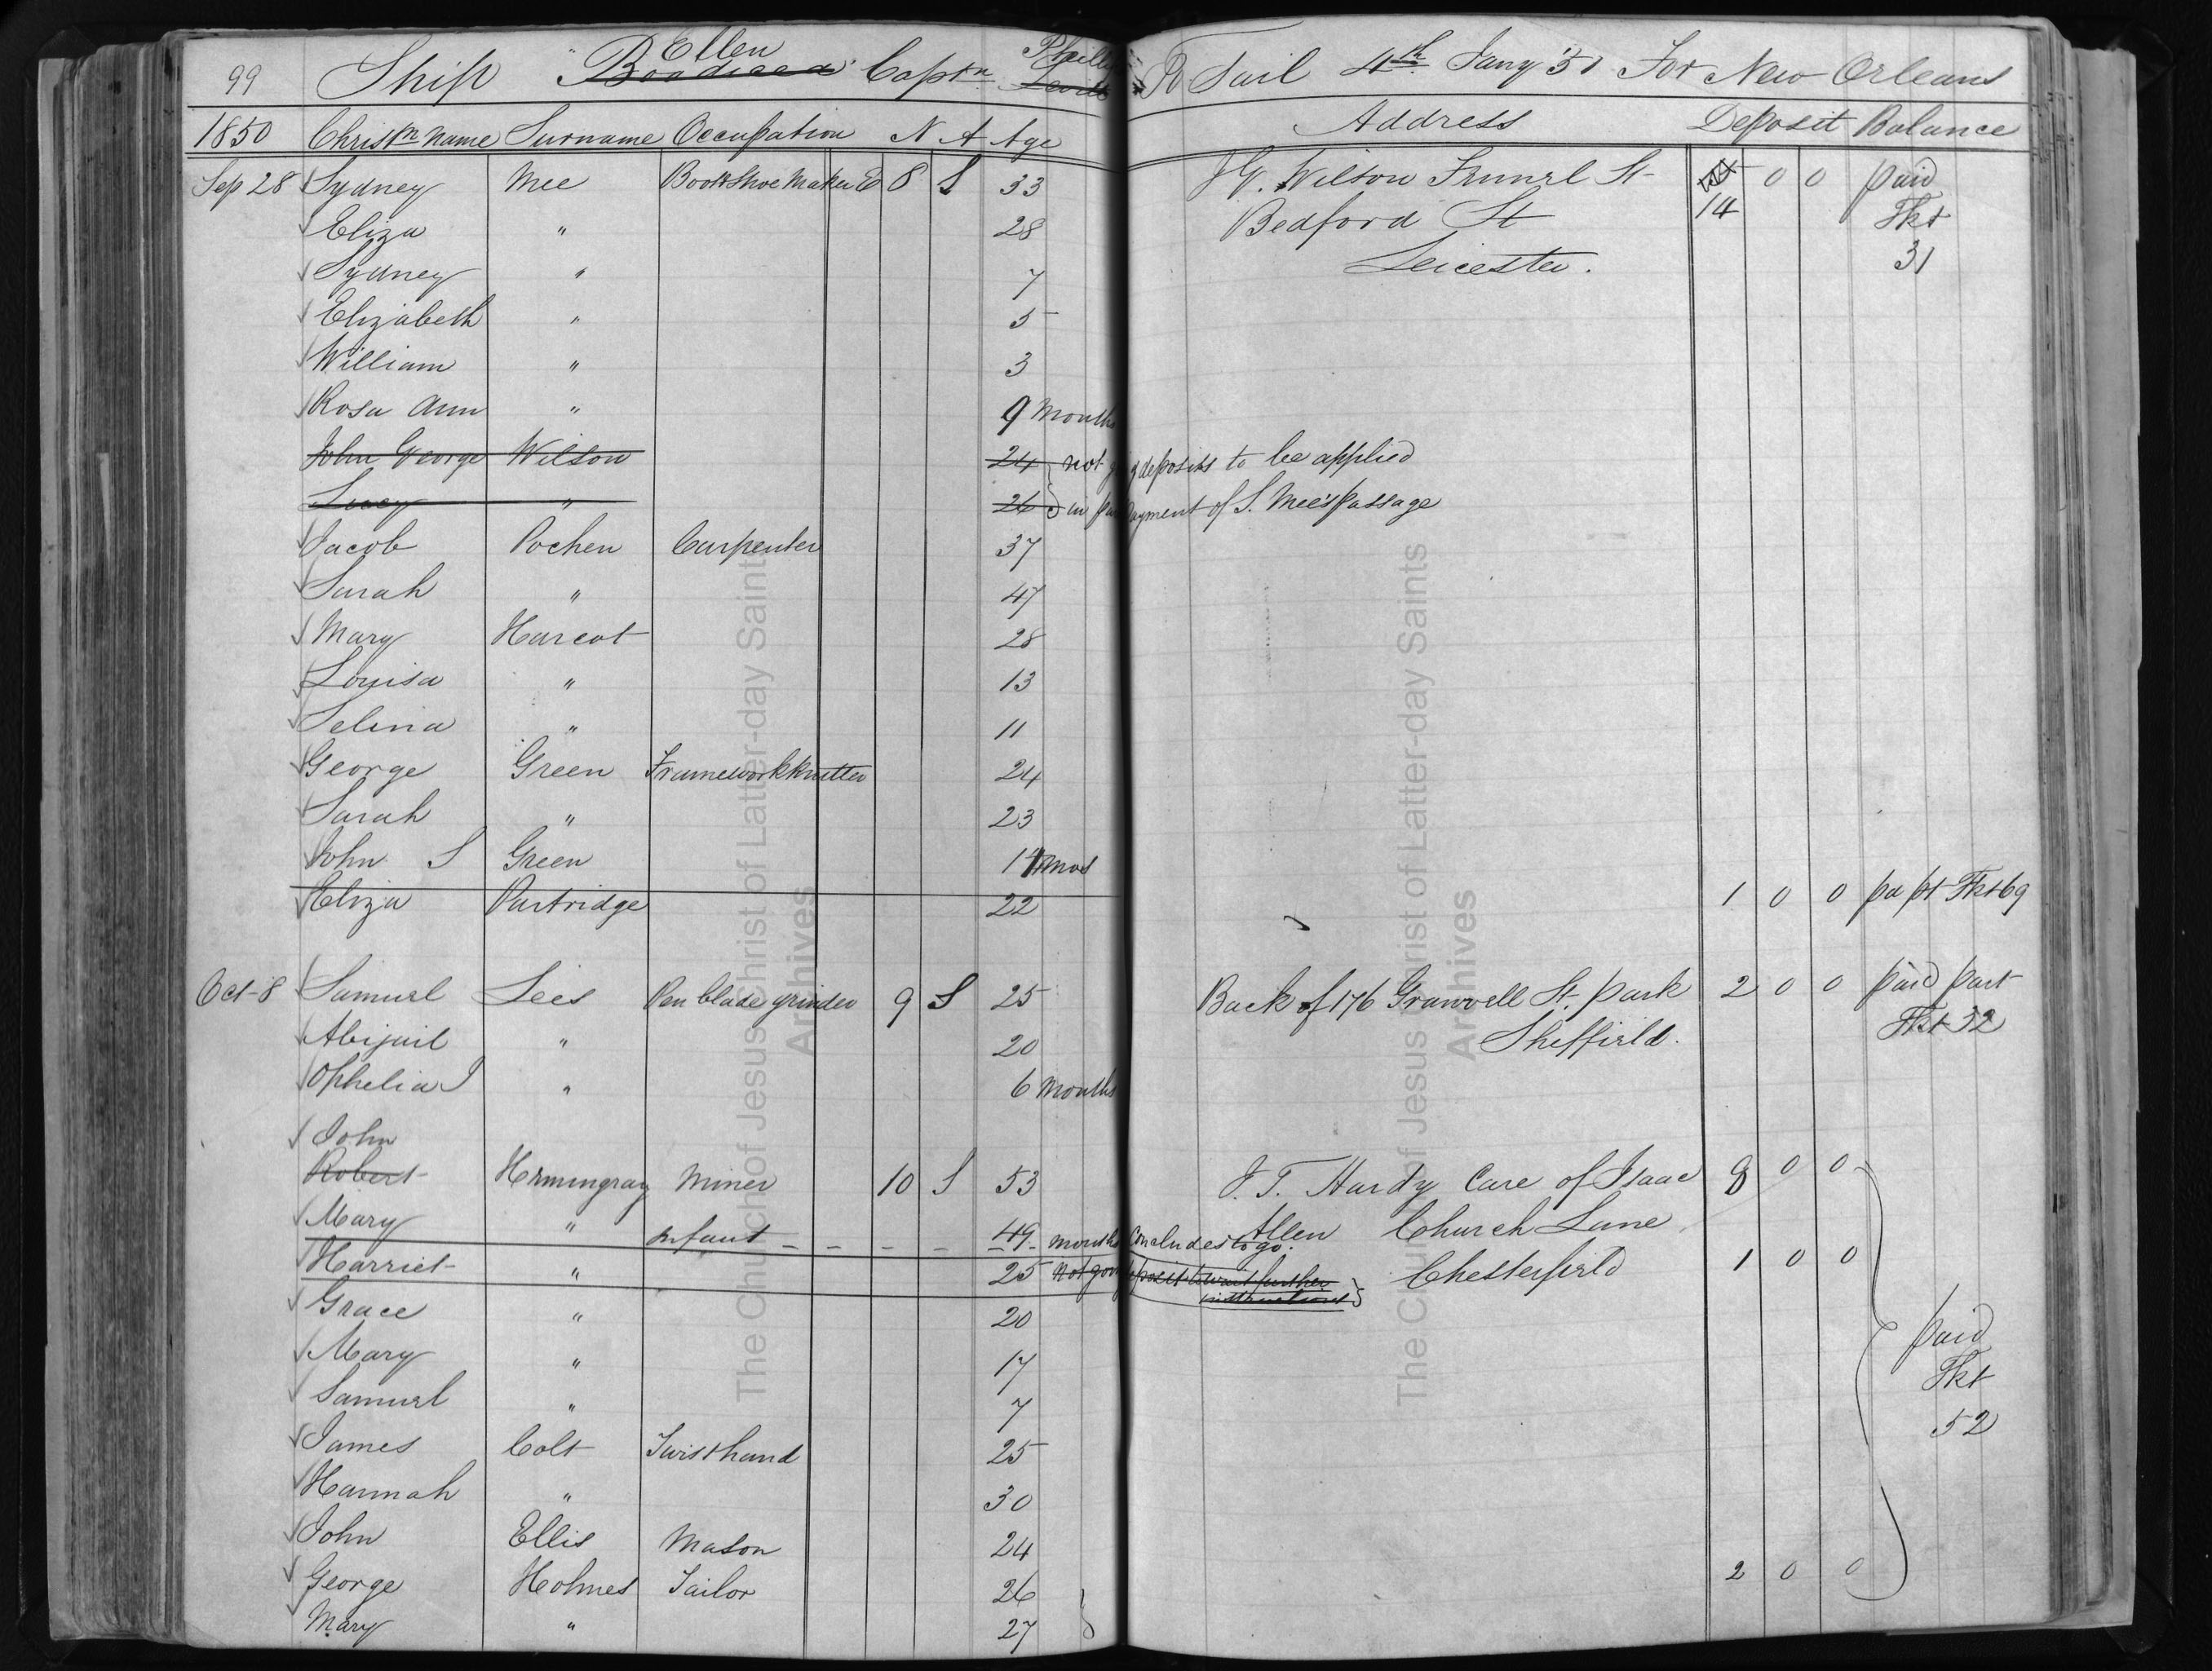 99 Ship Ellen Boadicea Captn Phillips To Sail 4th Jany 51 For New Orleans
1850 Christn Name Surname Occupation N A Age Address Deposit Balance
Sep 28 Sydney Mee Boot & Shoe Maker E 8 S 33 J G. Wilson Frunel St 0 0 paid
14
Eliza " 28 Bedford St Tkt
Sydney " 7 Leicester. 31
Elizabeth " 5
William " 3
Rosa Ann " 9 Months
John George Wilson 24 not deposits to be applied
Lucy " 26 in part payment of S. Mee's passage
Jacob Pochen Carpenter 37
Sarah " 47
Mary Harcot 28
Louisa " 13
Selina " 11
George Green Frameworkknitter 24
Sarah " 23
John S Green 11 mos
Eliza Partridge 22 1 0 0 pa pt Tkt 69
Oct 8 Samuel Lees Pen blade grinder 9 S 25 Back of 176 Granvell St. park 2 0 0 paid part
Abijail " 20 Sheffield. Tkt 32
Ophelia J " 6 Months
John
Robert Hemmingray Miner 10 S 53 J. T. Hardy Care of Isaac 8 0 0
Mary " 49 Allen Church Lane
infant - - - - months Concludes to go.
Harriet " 25 Not going deposit to wait further Chesterfield 1 0 0
instructions
Grace " 20
Mary " 17 paid
Samuel " 7 Tkt
James Colt Twisthand 25 52
Hannah " 30
John Ellis Mason 24
George Holmes Tailor 26 2 0 0
Mary " 27
The Church of Jesus Christ of Latter-day Saints
Archives
The Church of Jesus Christ of Latter-day Saints
Archives